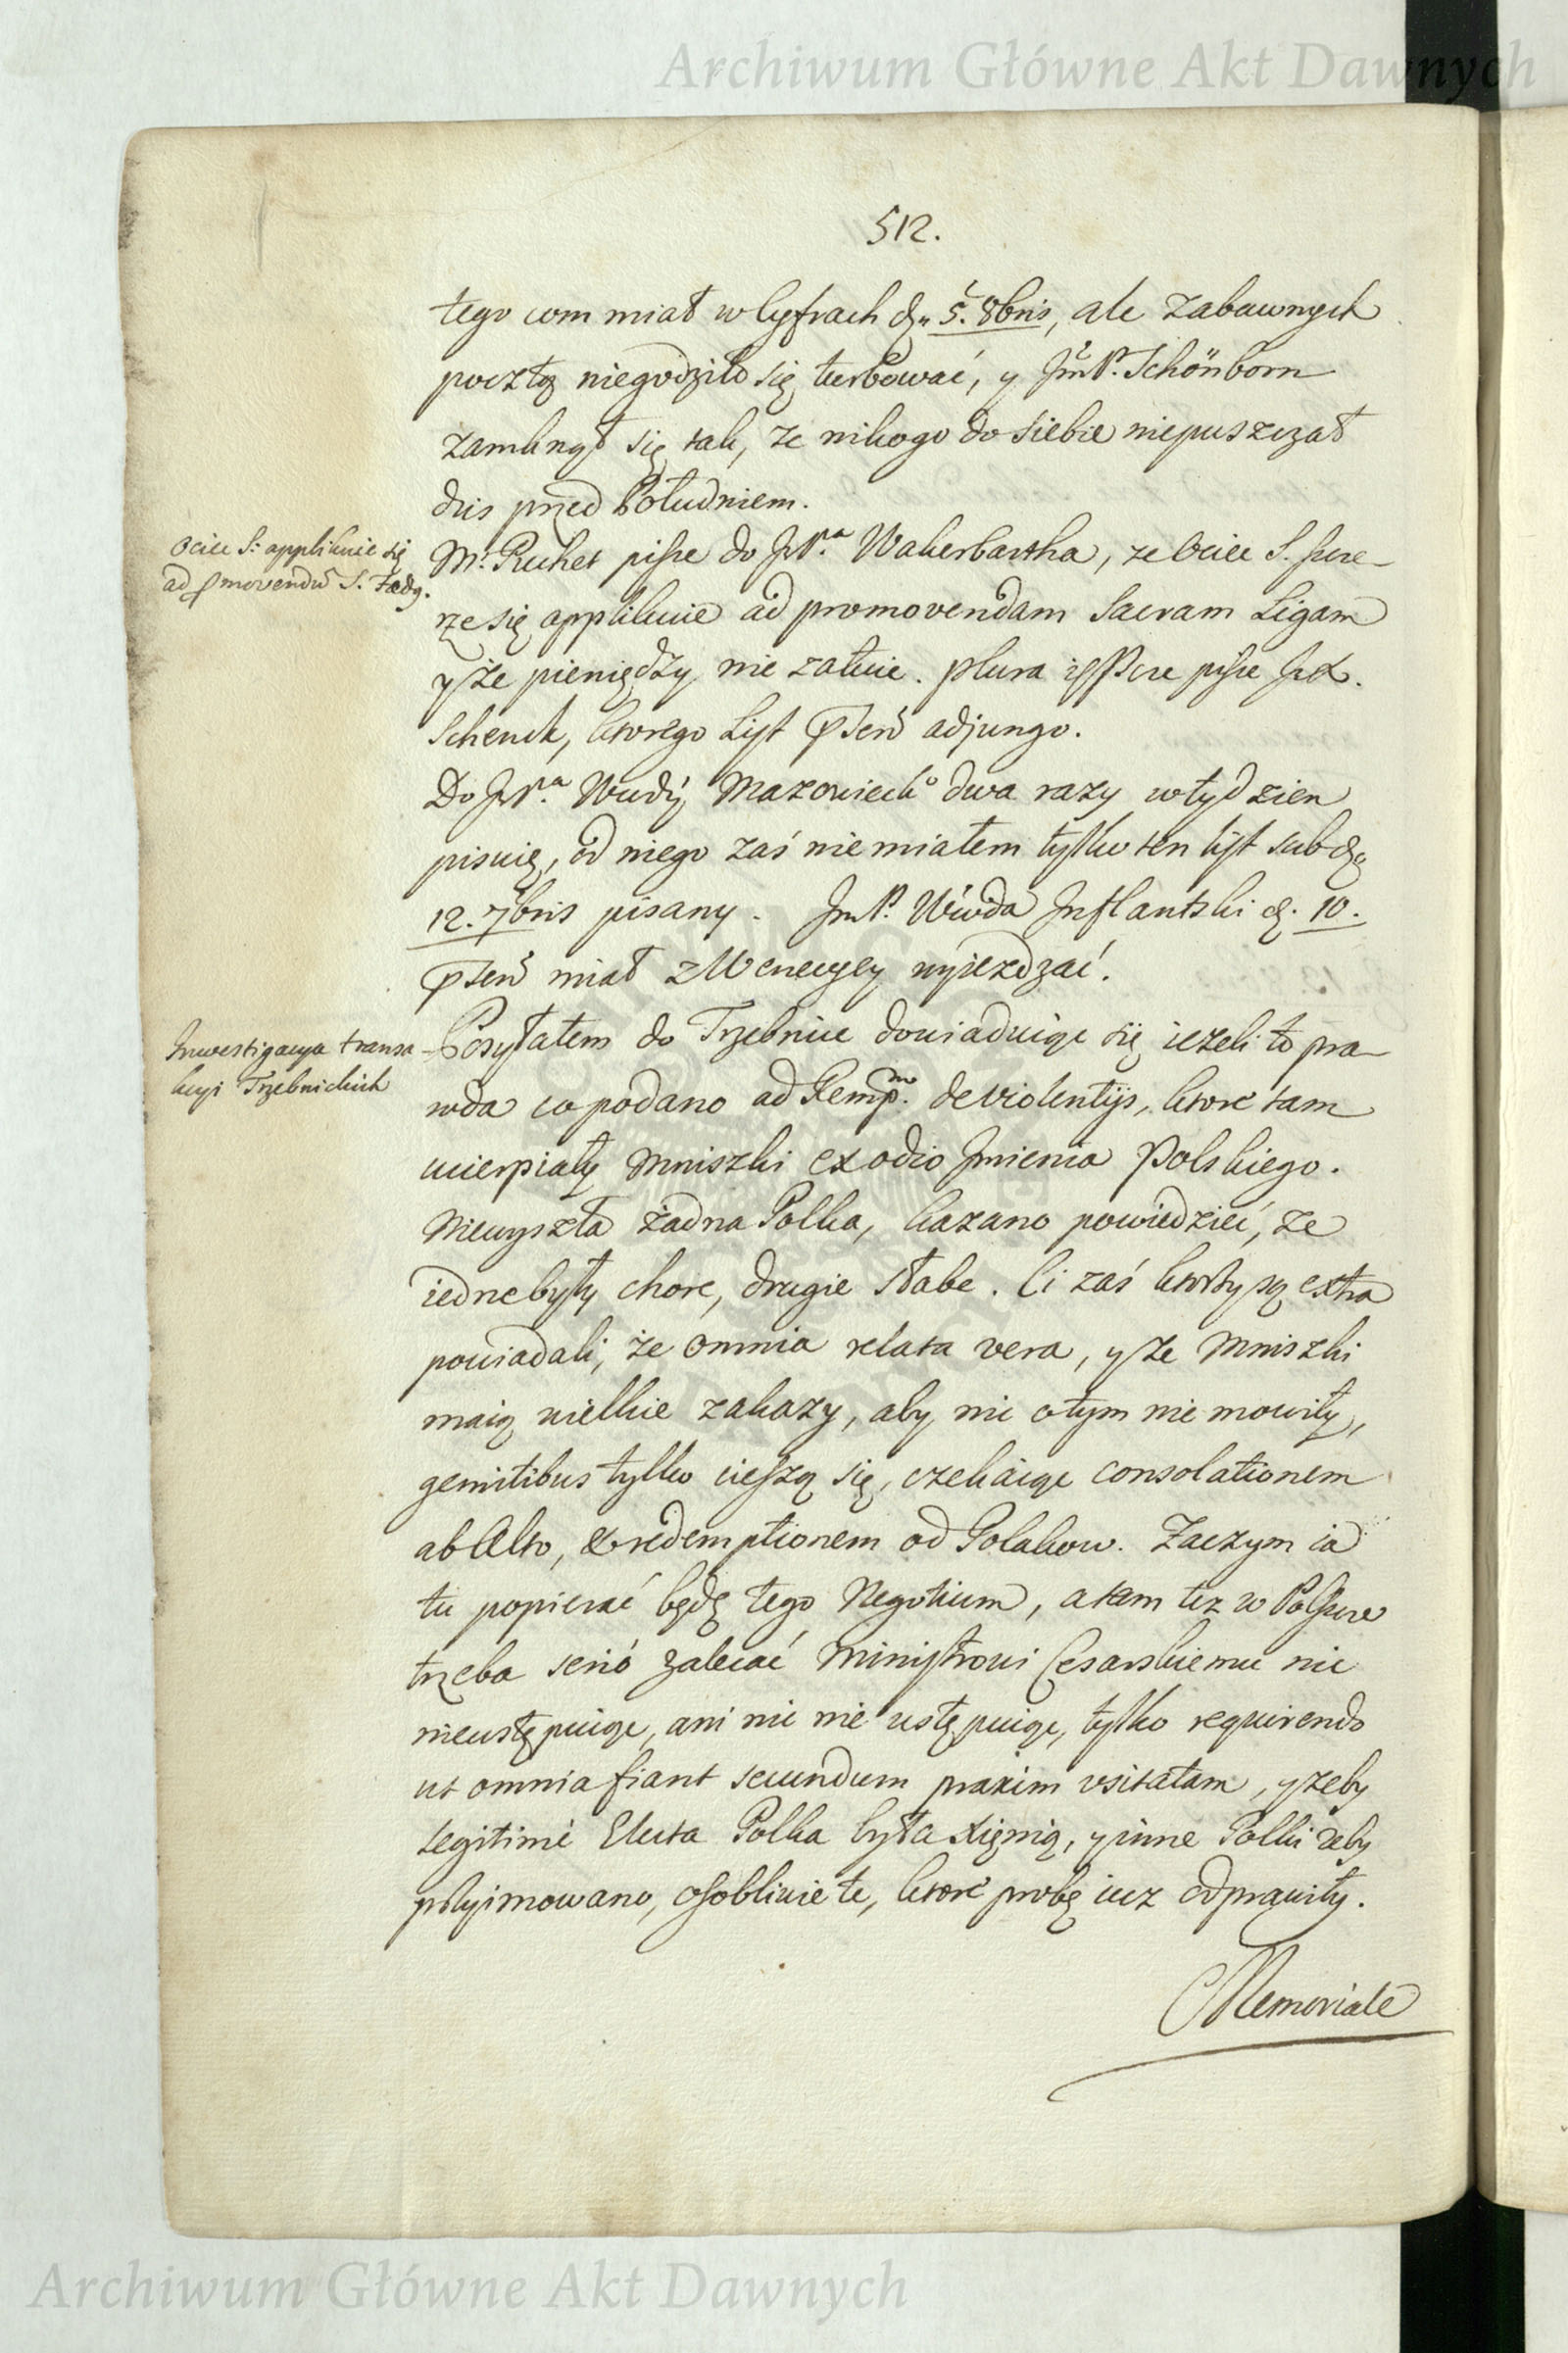 Archiwum Główne Akt Dawnych
512.
tego com miał w Cyfrach d. 5. 8bris, ale zabawnych
pocztą niegodziło się turbować, y Jm P. Schönborn
zamknął się tak, że nikogo do siebie niepuszczał
dziś przed Południem.
Ociec S: applikuie się
ad promovendū S. Fædg.
Mr. Ruchet pisze do Jr P.a Wakerbartha, że Ociec S. szcze-
rze się applikuie ad promovendam Sacram Ligam
y że pieniędzy nie załuie. plura pisze Jr X.
Schenck, ktorego List adjungo.
Do Jr P.a Wwdy Mazowieck.o dwa razy w tydzien
pisuię, od niego zaś nie miałem tylko ten list sub d.
12. 7bris pisany. Jm P. Wwda Inflantski d. 10.
miał z Wenecyey wyiezdzać.
Inwestigacya transa
kcyi Trzebnickich
Posyłałem do Trzebnice dowiaduiąc się iezeli to pra-
wda co podano ad Remp. de violentijs, ktore tam
ucierpiały Mniszki ex odio Imienia Polskiego.
Niewyszła żadna Polka, kazano powiedzieć, ze
iedne były chore, drugie słabe. Ci zaś ktorzy są extra
powiadali, że omnia relata vera, y ze Mniszki
maią wielkie zakazy, aby nic o tym nie mowiły,
gemitibus tylko cieszą się, czekaiąc consolationem
ab Alto, & redemptionem od Polakow. Zaczym ia
tu popierać będę tego Negotium, a tam tez w Polszcze
trzeba serió zalecać Ministrowi Cesarskiemu nic
nieustępuiąc, ani nic nie ustępuiąc, tylko requirendo
ut omnia fiant secundum praxim usitatam, y zeby
legitimè Electa Polka była Xięnią, y inne Polki zeby
przyimowano, osobliwie te, ktore probę iuz odprawiły.
Memoriale
Archiwum Główne Akt Dawnych